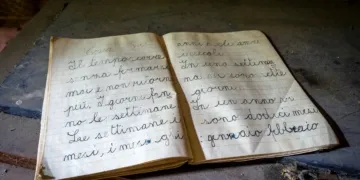 Il tempo corre
senza fermarsi
mai e non ritorn
più. I giorni fan
no le settimane
Le settimane i
mesi, i mesi gli
anni e gli anni
i secoli.
In una settima
na ci sono sette
giorni.
In un anno ci
sono dodici mesi
: gennaio febbraio